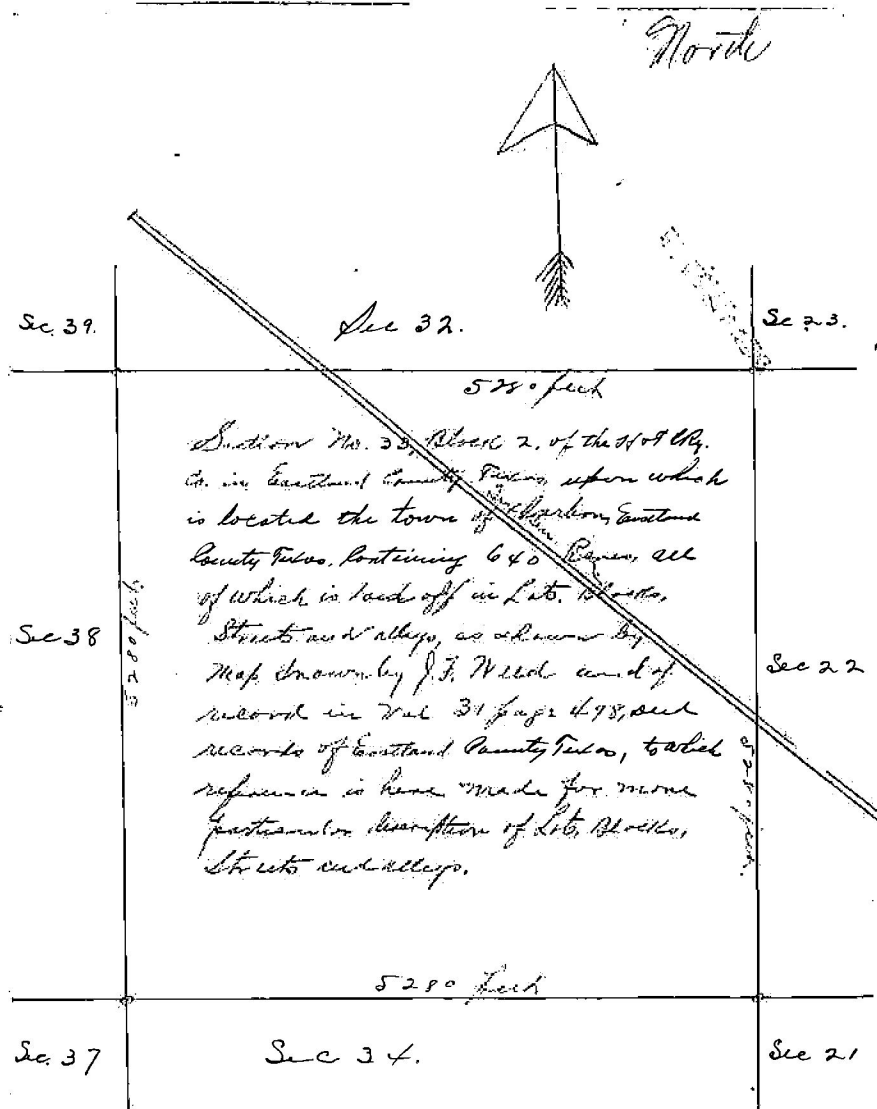 North
Sec. 39.
Sec 32.
Sec 23.
5280 feet
Section No. 33, Block 2, of the H & T C Ry.
Co. in Eastland County Texas upon which
is located the town of Carbon, Eastland
County Texas. Containing 640 Acres, all
of which is laid off in Lots. Blocks,
Streets and alleys, as shown by
Map drawn by J. F. Weed and of
record in Vol 31 page 498, deed
records of Eastland County Texas, to which
reference is here made for more
particular description of Lots, Blocks,
Streets and alleys.
Sec 38
5280 feet.
Sec 22
5280 feet.
5280 feet
Sec. 37
Sec 34.
Sec 21